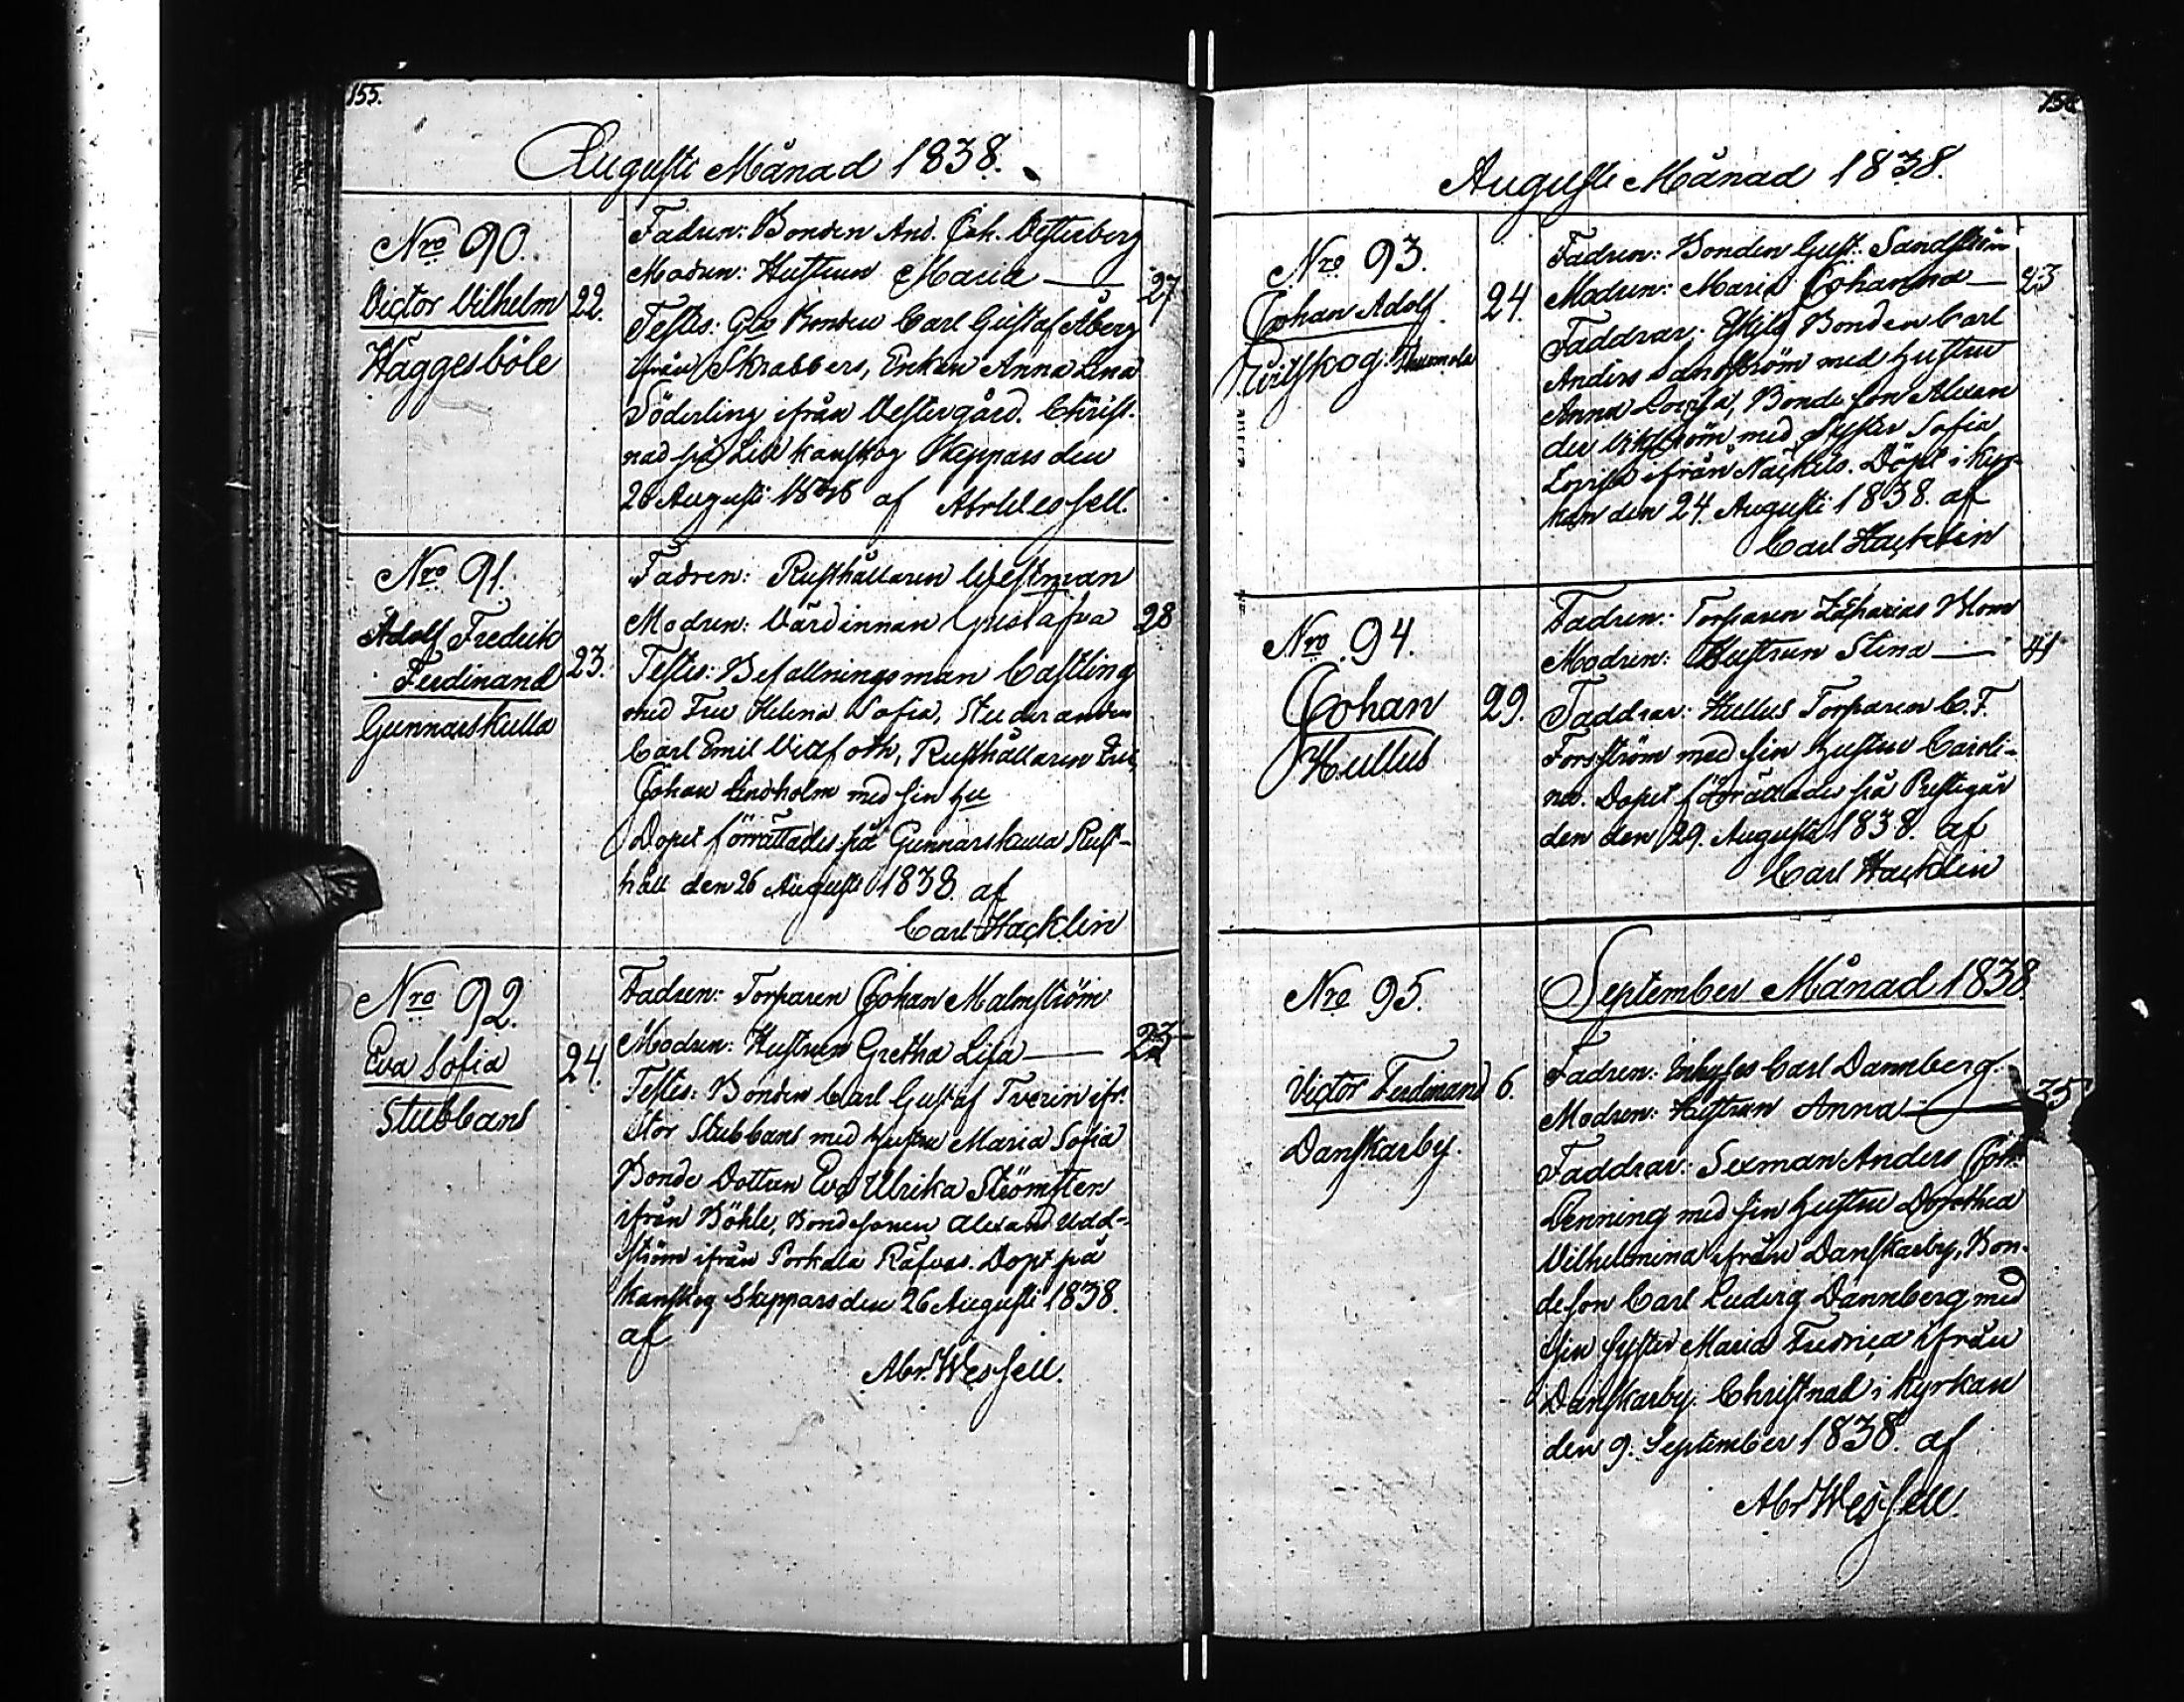 155.
Augusti Månad 1838.
Nro 90.
Victor Vilhelm
Häggesböle
22.
Fadren: Bonden And. Joh. Österberg
Modren: Hustrun Maria — 27
Testes: Bonden Carl Gustaf Åberg
ifrån Skrabbers, Enkan Anna Lena
Söderling ifrån Vestergård. Christ-
nad på Kanskog Skeppars den
26 Augusti 1838 af Abr Wessell.
Nro 91.
Adolf Fredrik
Ferdinand
Gunnarskulla
23.
Fadren: Rusthållaren Westman
Modren: Värdinnan Gustafva 28
Testes: Befallningsman Castling
med Fru Helena Sofia, Studeranden
Carl Emil, Rusthållaren
Johan Lindholm med sin Hu
Dopet förrättades på Gunnarskulla Rust-
håll den 26 Augusti 1838. af
Carl Hacklin
Nro 92.
Eva Sofia
Stubbans
24.
Fadren: Torparen Johan Malmström
Modren: Hustrun Gretha Lisa — 23
Testes: Bonden Carl Gustaf Tverin ifr.
Stor Stubbans med hustru Maria Sofia
Bonde Dottren Eva Ulrika Strömsten
ifrån Böhle, Bondesonen Alexand. Udd-
ström ifrån Porkala Räfvas. Döpt på
Kanskog Skeppars den 26 Augusti 1838.
af
Abr. Wessell.
Augusti Månad 1838.
Nro 93.
Johan Adolf
24.
Fadren: Bonden Gust. Sandström
Modren: Maria Johanna — 23
Faddrar: Bonden Carl
Anders Sandström med hustru
Anna Lovisa, Bondeson Alexan
der med Syster Sofia
Lovisa ifrån Näckils. Döpt i Kyr-
kan den 24. Augusti 1838. af
Carl Hacklin
Nro 94.
Johan
Hullus
29.
Fadren: Torparen Zacharias Blom
Modren: Hustrun Stina — 41
Faddrar: Hullus Torparen C. F.
Forsström med sin hustru Caroli-
na. Dopet förrättades på Prestgår
den den 29. Augusti 1838. af
Carl Hacklin
Nro 95.
Victor Ferdinand
Danskarby.
6.
September Månad 1838.
Fadren: Inhyses Carl Dannberg.
Modren: Hustrun Anna — 35
Faddrar: Sexman Anders Joh.
Denning med sin hustru Dorothea
Vilhelmina ifrån Danskarby, Bon-
deson Carl Ludvig Dannberg med
sin syster Maria Fredrica ifrån
Danskarby. Christnad i kyrkan
den 9. September 1838. af
Abr Wessell.